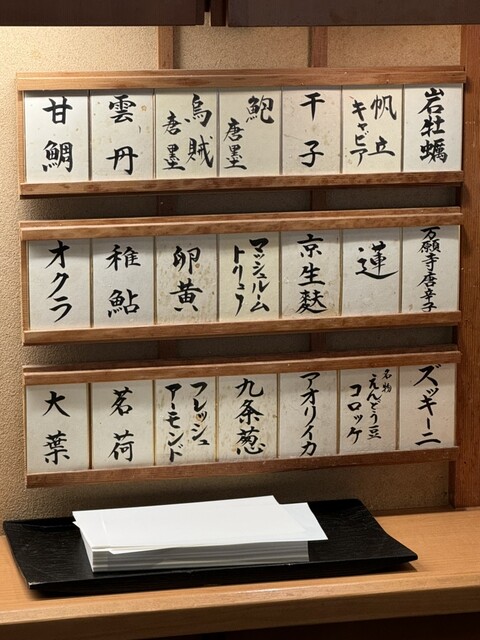 岩牡蠣
帆立
キャビア
干子
鮑
唐墨
烏賊
唐墨
雲丹
甘鯛
万願寺唐辛子
蓮
京生麩
マッシュルーム
トリュフ
卵黄
稚鮎
オクラ
ズッキーニ
名物
えんどう豆
コロッケ
アオリイカ
九条葱
フレッシュ
アーモンド
茗荷
大葉